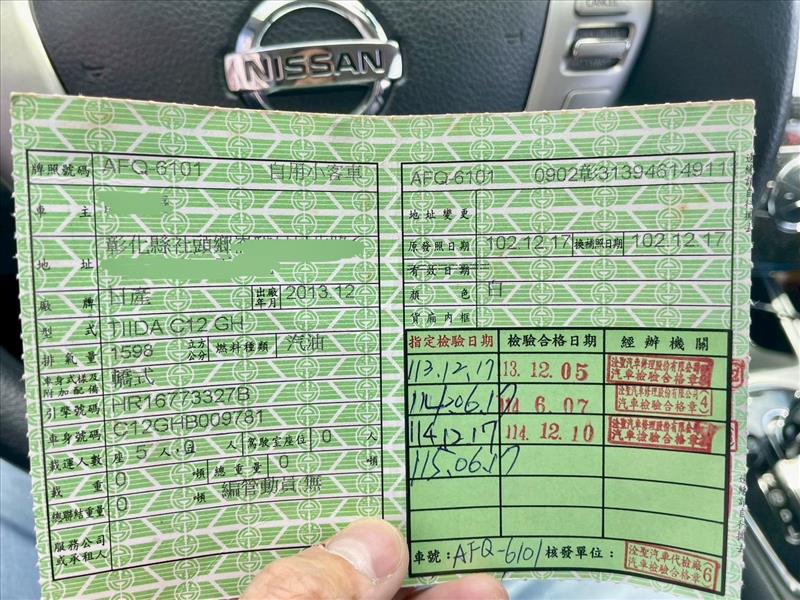 NISSAN
CANCEL
牌照號碼 AFQ-6101 自用小客車
車主
地址 彰化縣社頭鄉
廠牌 日產 出廠年月 2013.12
型式 TIIDA C12 GH
排氣量 1598 立方公分 燃料種類 汽油
車身式樣及附加配備 轎式
引擎號碼 HR16773327B
車身號碼 C12GHB009781
載運人數 座 5 人,0 人 駕駛室座位 0 人
載重 0 噸 總重量 0 噸
總聯結重量 0 噸 編管動員 無
服務公司或承租人
AFQ-6101 0902彰31394614911
地址變更
原發照日期 102.12.17 換補照日期 102.12.17
有效日期
顏色 白
貨廂內框
指定檢驗日期 檢驗合格日期 經辦機關
113.12.17 13.12.05 淦聖汽車修理股份有限公司 汽車檢驗合格章
114.06.17 114 6.07 淦聖汽車修理股份有限公司 汽車檢驗合格章 4
114.12.17 114.12.10 淦聖汽車修理股份有限公司 汽車檢驗合格章
115.06.17
車號:AFQ-6101 核發單位: 淦聖汽車代檢廠 汽車檢驗合格章 6